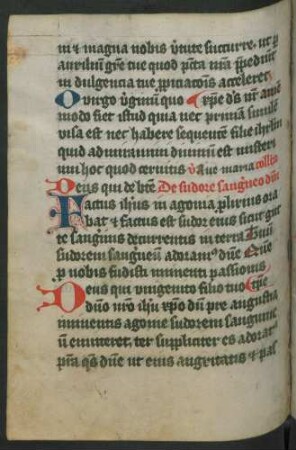 ni et magna nobis virtute succurre, ut per
auxilium gratie tue quod peccata nostra prepediunt
indulgencia tue propiciacionis acceleret
O virgo virginum quo
modo fiet istud quia nec primam similem
visa est nec habere sequentem filie iherusalem
quid admiramini divinum est misterium
hoc quod cernitis Ave maria collecta
Deus qui de beate De sudore sangwineo domini
Factus ihesus in agonia prolixius ora
bat et factus est sudor eius sicut gut
te sangwinis decurrentis in terram
sudorem sangwineum adoramus domine Quem
pro nobis fudisti imminenti passionis
Deus qui unigenito filio tuo
domino nostro ihesu christo dum pre angustia
imminentis agonie sudorem sangwineum
emitteret, ter suppliciter es adoratus
presta quesumus domine ut eius